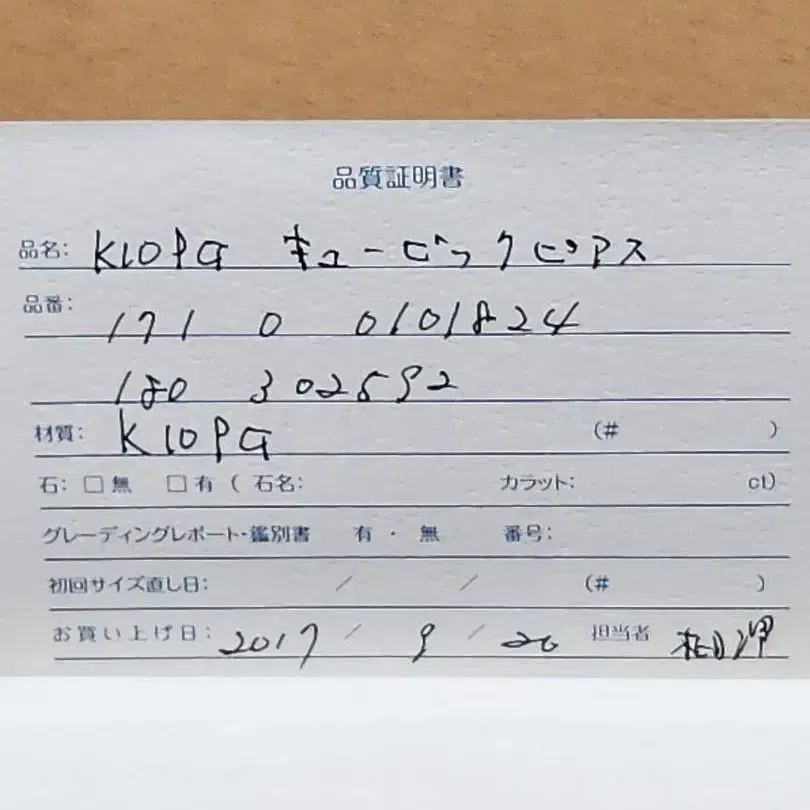 品質証明書
品名: K10PG キュービックピアス
品番: 171 0 0101824
180 302592
材質: K10PG (# )
石: □無 □有 ( 石名: カラット: ct)
グレーディングレポート・鑑別書 有 ・ 無 番号:
初回サイズ直し日: / / (# )
お買い上げ日: 2017 / 9 / 20 担当者